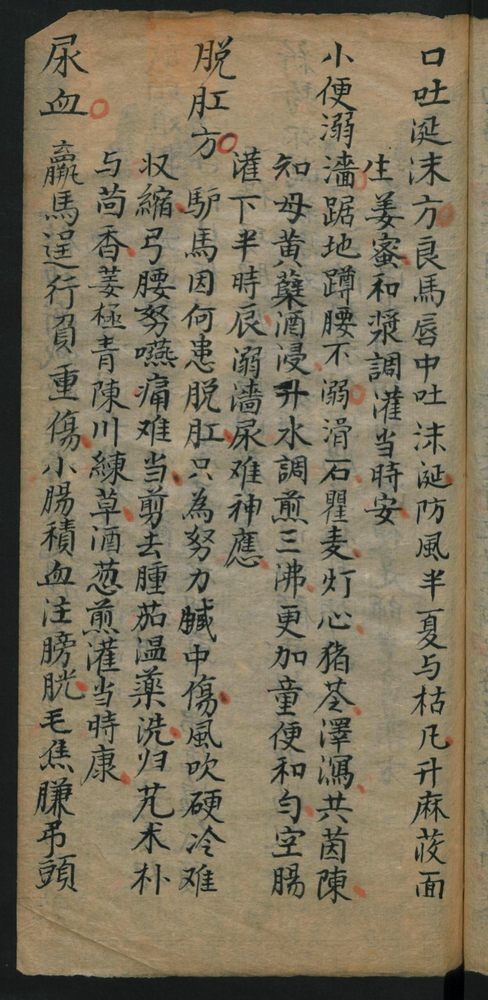 口吐涎沫方良馬唇中吐沫涎防風半夏与枯凡升麻莈面
生姜蜜和漿調灌当時安
小便溺濇踞地蹲腰不溺滑石瞿麦灯心猪苓澤瀉共茵陳
知母黄蘗酒浸升水調煎三沸更加童便和勻空腸
灌下半時辰溺濇尿难神應
脱肛方驴馬因何患脱肛只為努力臟中傷風吹硬冷难
収縮弓腰努嚥痛难当剪去腫茄温薬洗归芃术朴
与茴香菨極青陳川練草酒葱煎灌当時康
尿血羸馬逞行負重傷小腸積血注膀胱毛焦膁吊頭